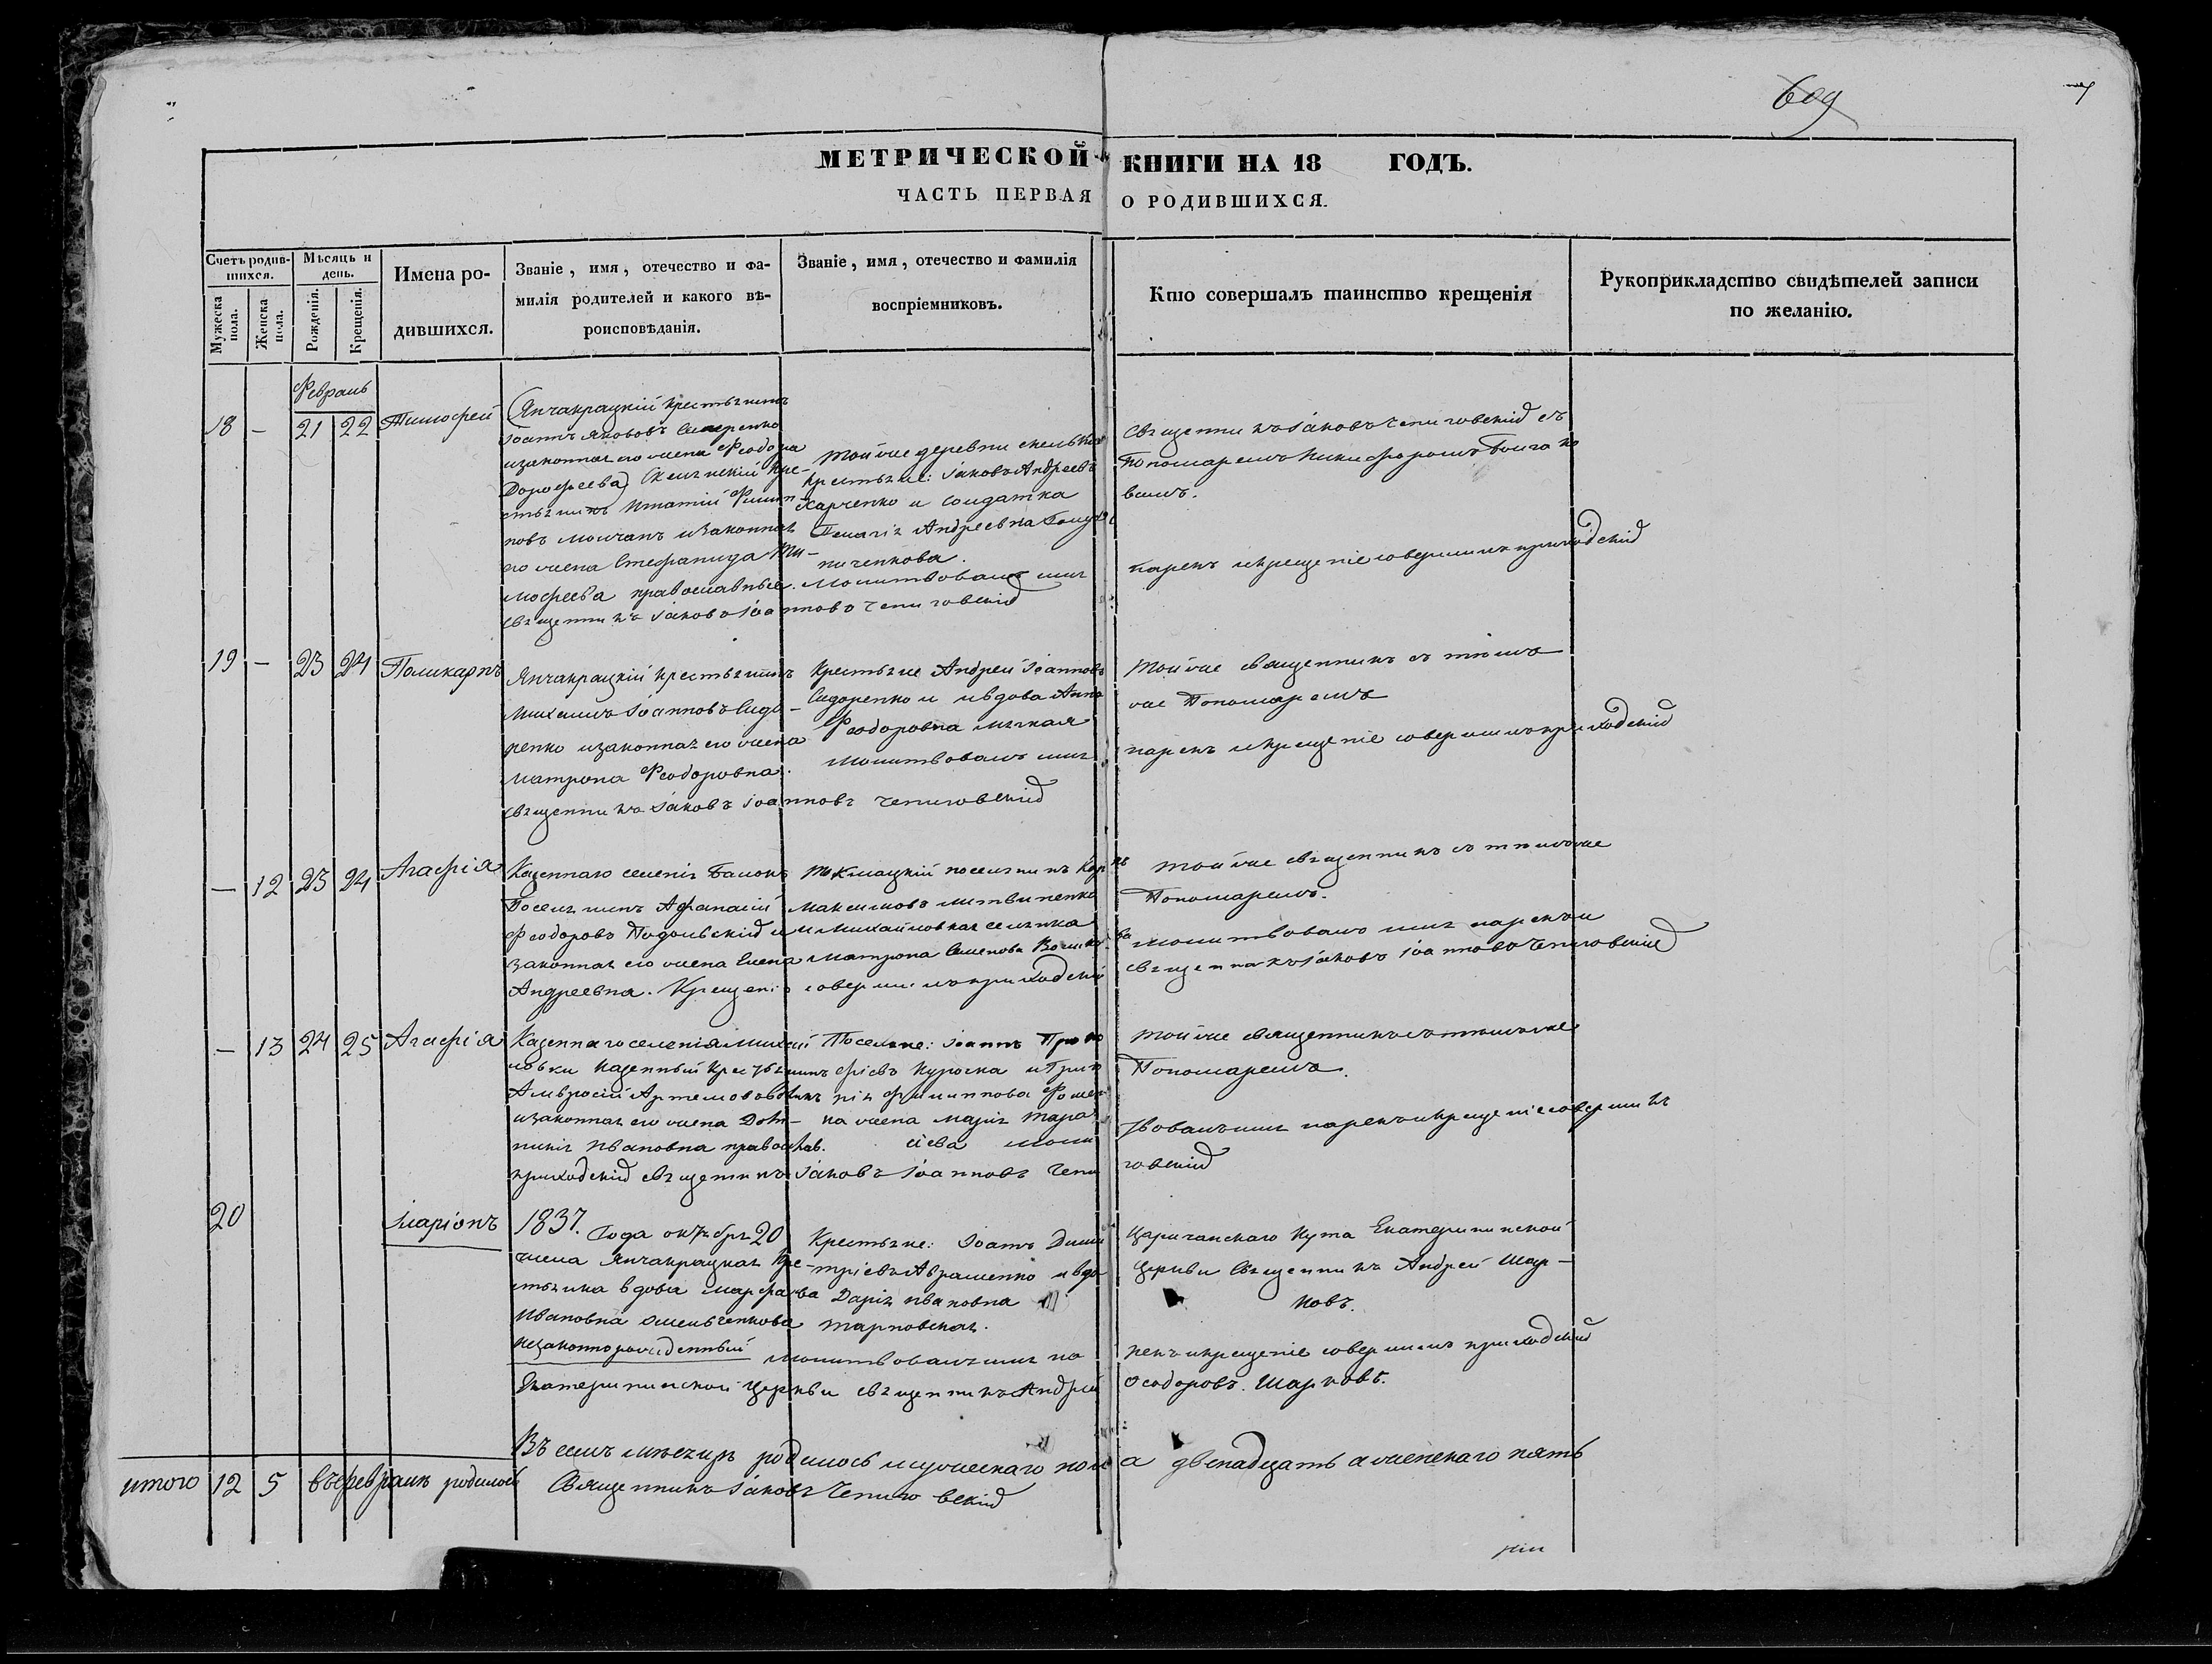 609
МЕТРИЧЕСКОЙ КНИГИ НА 18 ГОДЪ.
ЧАСТЬ ПЕРВАЯ О РОДИВШИХСЯ.
Счетъ родив-
шихся.
Мужеска
пола.
Женска
пола.
Мѣсяць и
день.
Рожденія.
Крещенія.
Имена ро-
дившихся.
Званіе, имя, отечество и фа-
милія родителей и какого вѣ-
роисповѣданія.
Званіе, имя, отечество и фамилія
воспріемниковъ.
Кто совершалъ таинство крещенія
Рукоприкладство свидѣтелей записи
по желанію.
Февраль
18 - 21 22 Тимофей
(Янчакрацкій крестьянинъ
Іоаннъ Якововъ
изаконная его жена Феодора
Дорофеева) Скельнскій кре-
стьянинъ Игнатій Филип-
повъ Молчанъ изаконная
его жена Стефанида Ти-
мофеева православные. Молитвовалъ имя
священникъ Іаковъ Іоанновъ Чепиговскій
Тойже деревни скельки
крестьяне: Іаковъ Андреевъ
Харченко и солдатка
Пелагія Андреевна
ниченкова.
Священникъ Іаковъ Чепиговскій съ
Пономаремъ Никифоромъ
вымъ.
нарекъ икрещеніе совершилъ приходскій
19 - 23 24 Поликарпъ
Янчакрацкій крестьянинъ
Михаилъ Іоанновъ Сидо-
ренко изаконная его жена
Матрона Феодоровна.
священникъ Іаковъ Іоанновъ Чепиговскій
Крестьяне Андрей Іоанновъ
Сидоренко и ивдова Анна
Феодоровна Мягкая
молитвовалъ имя
Тойже священникъ стѣмъ
же Пономаремъ
нарекъ икрещеніе совершилъ приходскій
- 12 23 24 Агафія
Казеннаго селенія Балокъ
Поселянинъ Афанасій
Феодоровъ Подольскій и
законная его жена Елена
Андреевна. Крещеніе совершилъ приходскій
Токмацкій поселянинъ
Максимовъ Литвиненко
и Михайловкая селянка
Матрона Семенова
Тойже священникъ стѣмъже
Пономаремъ.
молитвовалъ имя нарекъ и
священникъ Іаковъ Іоанновъ Чепиговскій
- 13 24 25 Агафія
Казеннаго селенія Михай
ловки казенный крестьянинъ
Амвросій Артемововъ
изаконная его жена Дом-
никія Ивановна православ.
приходскій священникъ Іаковъ Іоанновъ Чепи
Поселяне: Іоаннъ Проко
фіевъ Куроска
Филиппова Фомен
ка жена Марія Тара
сіева моли
Тойже священникъ стѣмъже
Пономаремъ.
твовалъ имя нарекъ икрещеніе совершилъ
говскій
20 Иларіонъ
1837. Года октября 20
числа Янчакрацкая кре-
стьянка вдова Марфа
Ивановна Омельченкова
незаконнорожденный
Екатерининской Церкви священникъ Андрей
Крестьяне: Іоаннъ Дими
тріевъ Авраменко ивдо
ва Дарія Ивановна
Тарновская.
молитвовалъ имя на
Царичанскаго Кута Екатерининской
Церкви Священникъ Андрей Шар-
ковъ.
рекъ икрещеніе совершилъ приходскій
Феодоровъ. Шарковъ.
Въ семъ мѣсяцѣ родилось мужескаго пола двенадцать аженскаго пять
итого 12 5 въ февралѣ родилось
Священникъ Іаковъ Чепиговскій